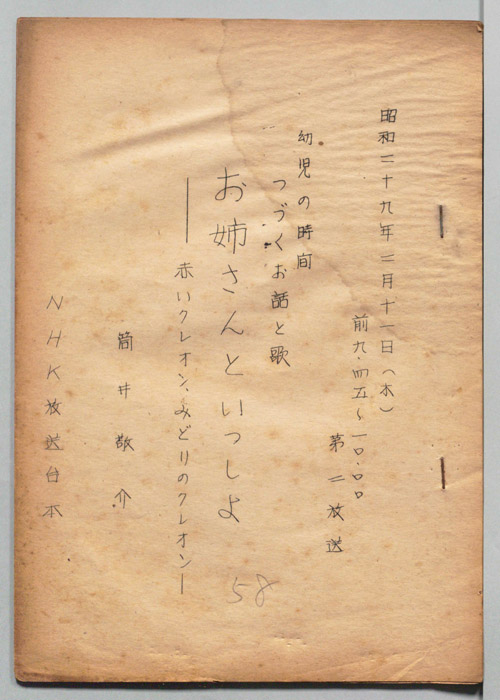 昭和二十九年三月十一日(木)
前九・四五〜一〇・〇〇
第二放送
幼児の時間
つづくお話と歌
お姉さんといっしよ
―赤いクレオン、みどりのクレオン―
筒井敬介
NHK放送台本
58